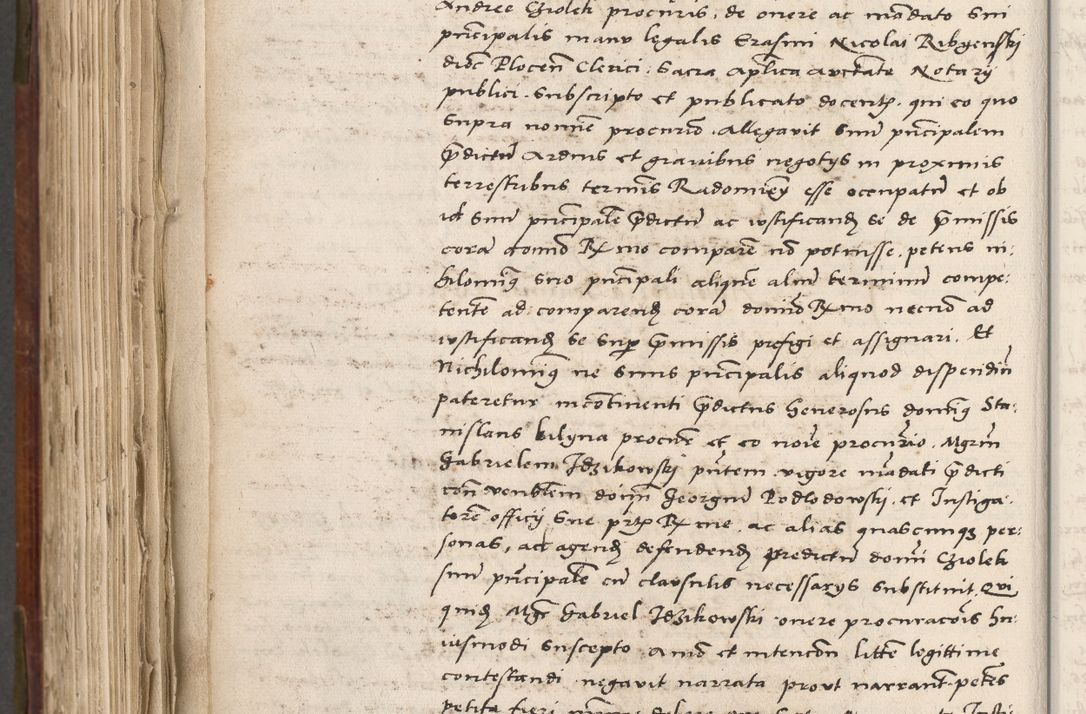 Andree Cziolek procuris, de onere ac mãdato sui
pncipalis manu legalis Erasmi Nicolai Ribyenski
dioc Plocen Clerici. Sacra aplica auctate Notarij
publici. Subscripto et publicato docent. qui eo quo
supra nomie procurio. Allegavit suũ pncipalem
pdictũ arduis et gravibus negotijs in proximis
terrestribus terminis Radomien esse occupatũ et ob
id suũ pncipale pdictũ ac iustificand se de pmissis
corã domino R mo compare nõ potuisse. petens ni:
hilominq suo pncipali aliquẽ aliũ terminum compe:
tente ad comparend corã domino R mo necnõ ad
iustificand se sup pmissis prefigi et assignari. Et
Nichilominq ne suus pncipalis aliquod dispendiũ
pateretur incontinenti pdictus Generosus dominq Sta:
nislaus kilyna procur et eo noie procurio. Mgrm
Gabrielem Idzikowski pntem. vigore mãdati pdicti
con venblem domi Georgiũ Podlodowski. et Instiga:
torẽ officij sue prts R me. ac alias quascunq3 per:
sonas, ad agend defendend predictũ domi Czioleki
suũ pncipalẽ cũ clausulis necessarijs substituit. Qui
quid Mgr Gabriel Idzikowski onere procuracois hu:
iusmodi suscepto. Animo et intencon litte legittime
contestandi negavit narrata prout narrant. petes
petita fieri